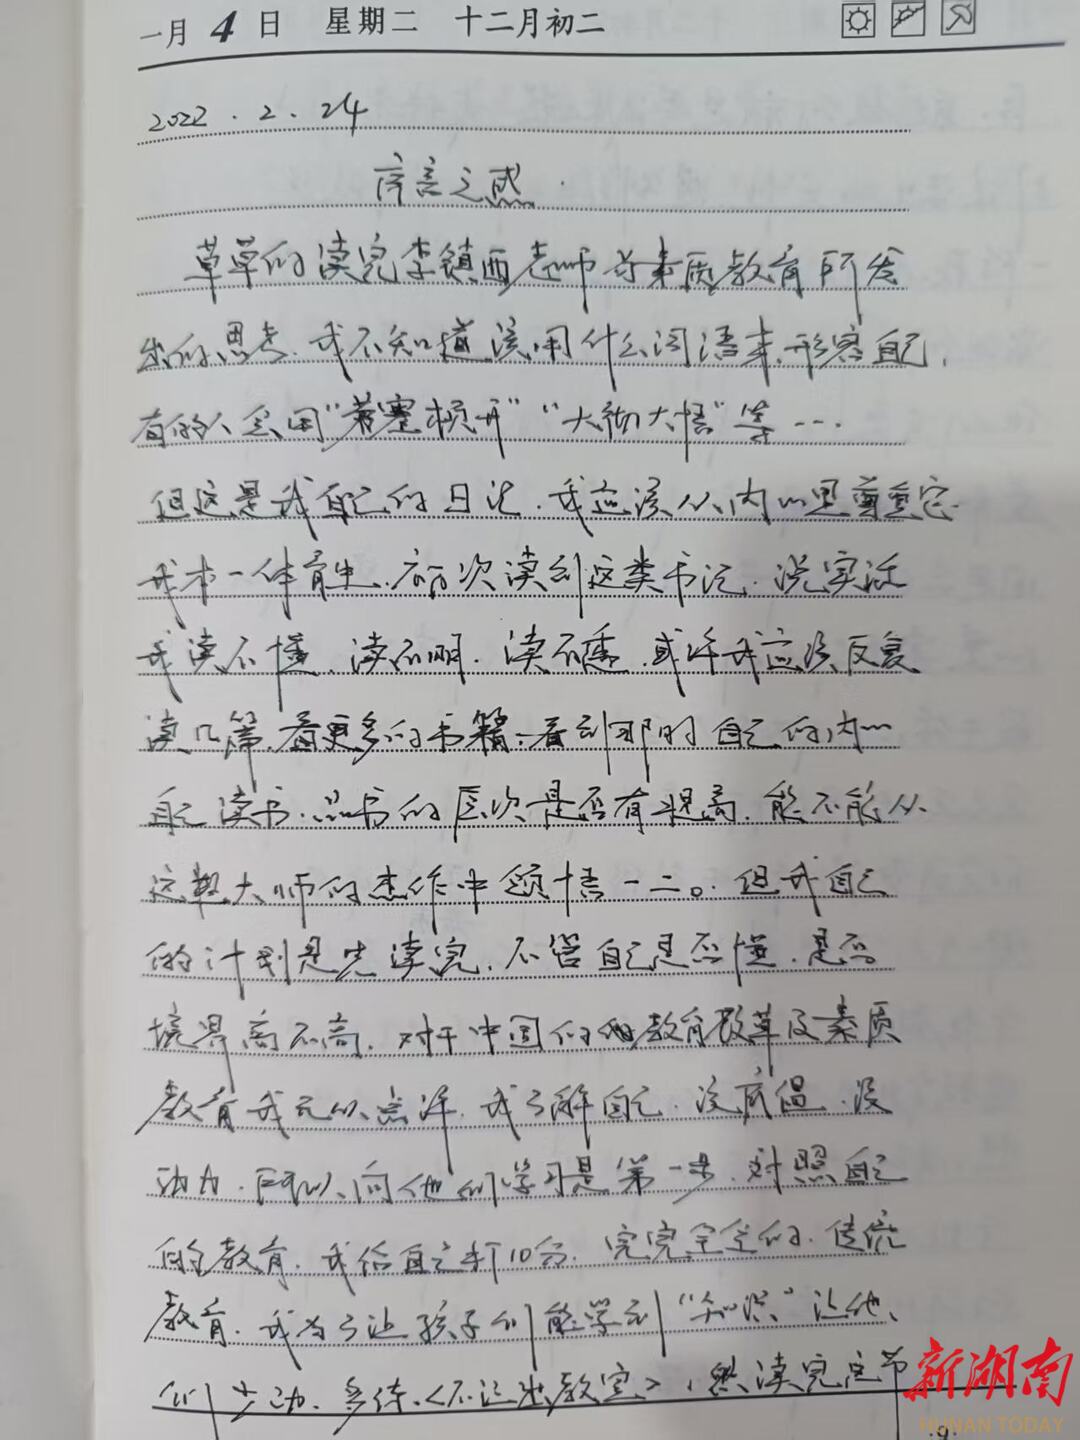 一月 4 日 星期二 十二月初二
2022.2.24
序言之感.
草草的读完李镇西老师对素质教育所发
出的思考.我不知道该用什么词语来形容自己,
有的人会用"茅塞顿开""大彻大悟"等…
但这是我自己的日记.我应该从内心里尊重它.
我本一体育生.初次读到这类书记.说实话
我读不懂.读不明.读不透.或许我应该反复
读几篇.看更多的书籍.看到那时自己的内心
自己读书.品书的层次是否有提高.能不能从
这些大师的杰作中领悟一二。但我自己
的计划是先读完.不管自己是否懂.是否
境界高不高.对于中国的教育改革及素质
教育我无从点评.我了解自己.没底蕴.没
动力.所以向他们学习是第一步.对照自己
的教育.我给自己打10分.完完全全的.传统
教育.我为了让孩子们能学到"知识"让他
们少动.多练.<不让出教室>,然读完这节
9.
新湖南
HUNAN TODAY